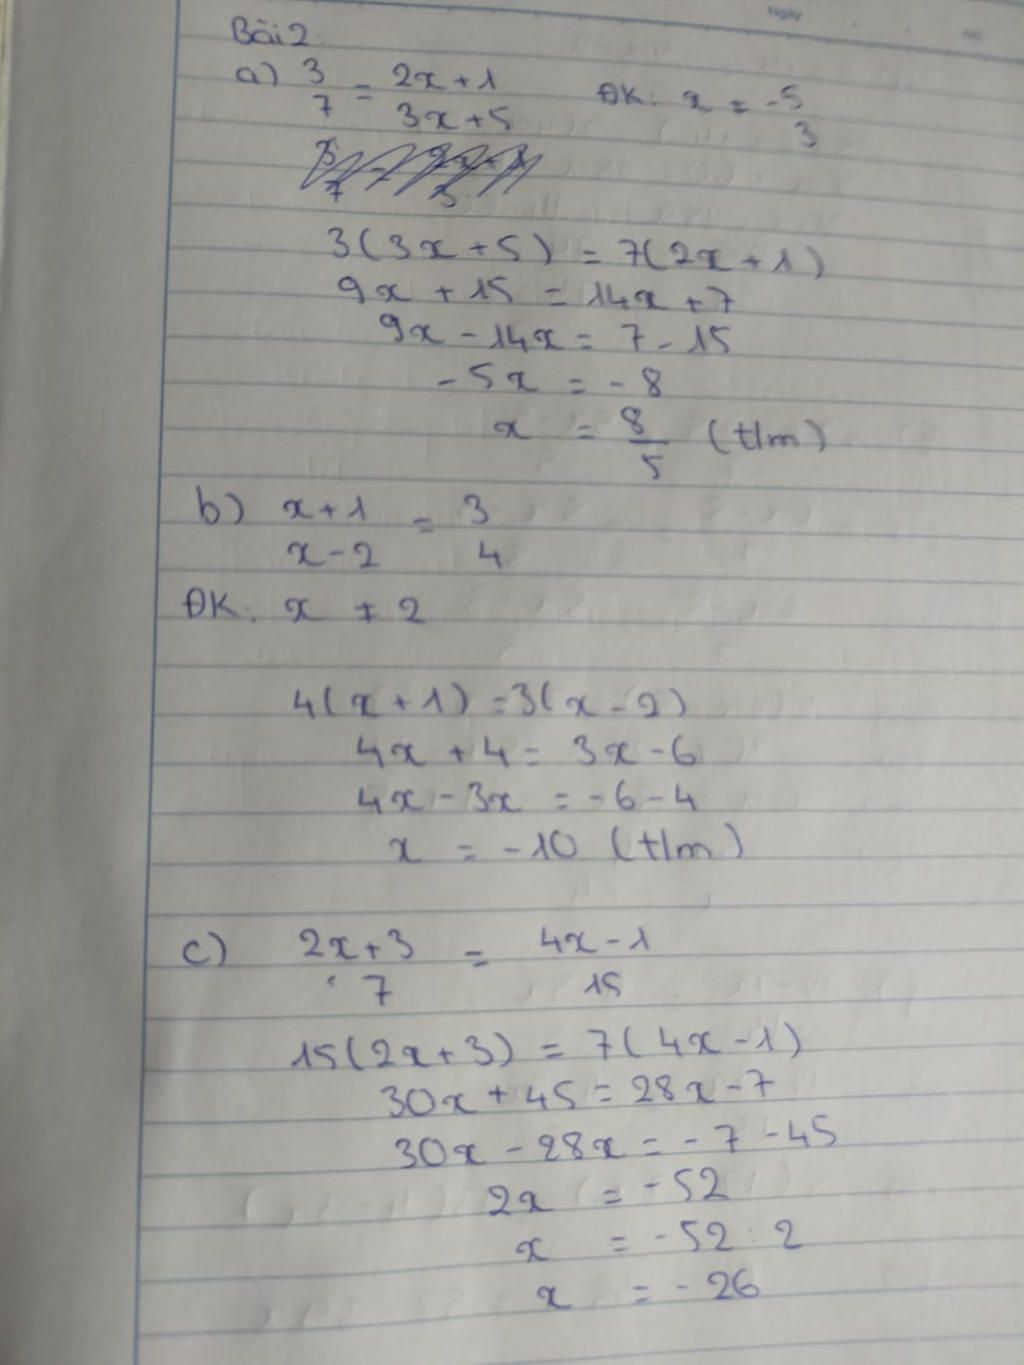 Ngày
Bài 2:
a) 3/7 = 2x+1/3x+5 ĐK: x = -5/3
3(3x+5) = 7(2x+1)
9x + 15 = 14x + 7
9x - 14x = 7 - 15
-5x = -8
x = 8/5 (t/m)
b) x+1/x-2 = 3/4
ĐK: x ≠ 2
4(x+1) = 3(x-2)
4x + 4 = 3x - 6
4x - 3x = -6 - 4
x = -10 (t/m)
c) 2x+3/7 = 4x-1/15
15(2x+3) = 7(4x-1)
30x + 45 = 28x - 7
30x - 28x = -7 - 45
2x = -52
x = -52 : 2
x = -26